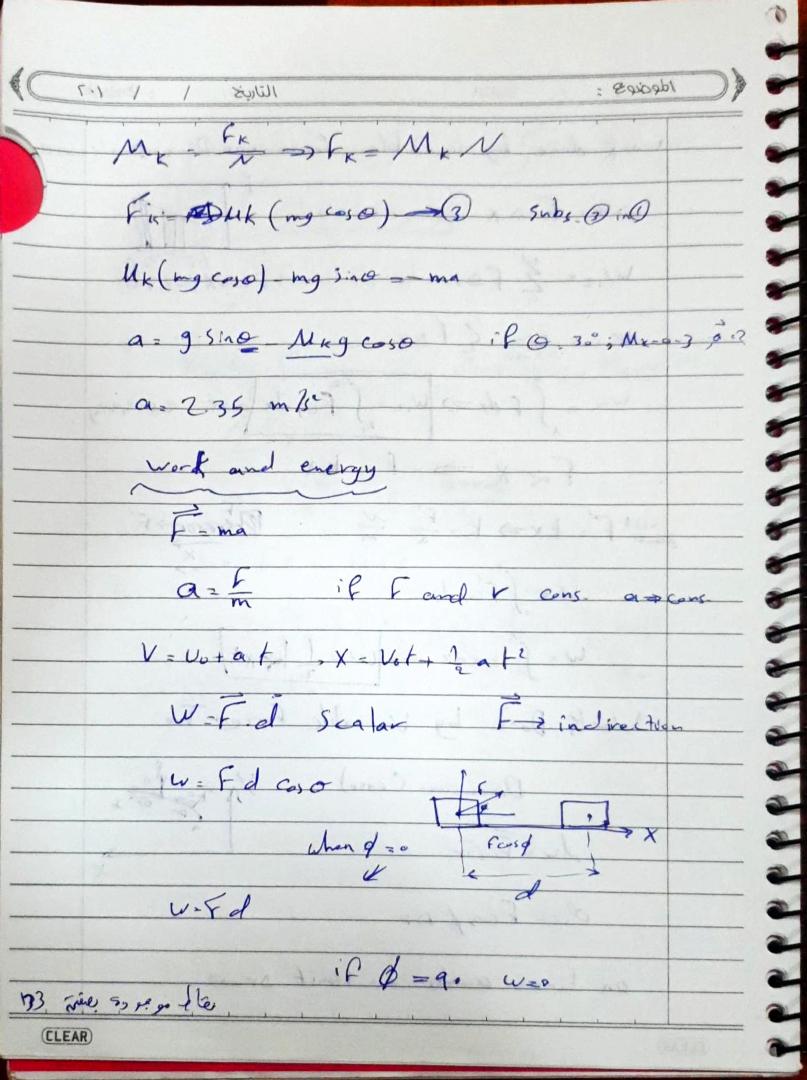 الموضوع : التاريخ / / ٢٠١
μk = Fk/N ⇒ Fk = μk N
Fk = μk (mg cosθ) → ③ Subs. ③ in ①
μk (mg cosθ) - mg sinθ = - ma
a = g sinθ - μk g cosθ if θ = 30° ; μk = 0.3
a = 2.35 m/s²
work and energy
F = ma
a = F/m if F and r cons. a ⇒ cons.
V = v0 + at , X = V0t + 1/2 at²
W = F . d Scalar F → indirection
W = F d cosθ
F
X
when ϕ = 0 Fcosϕ
d
W = F d
if ϕ = 90 W = 0
موجودة
CLEAR